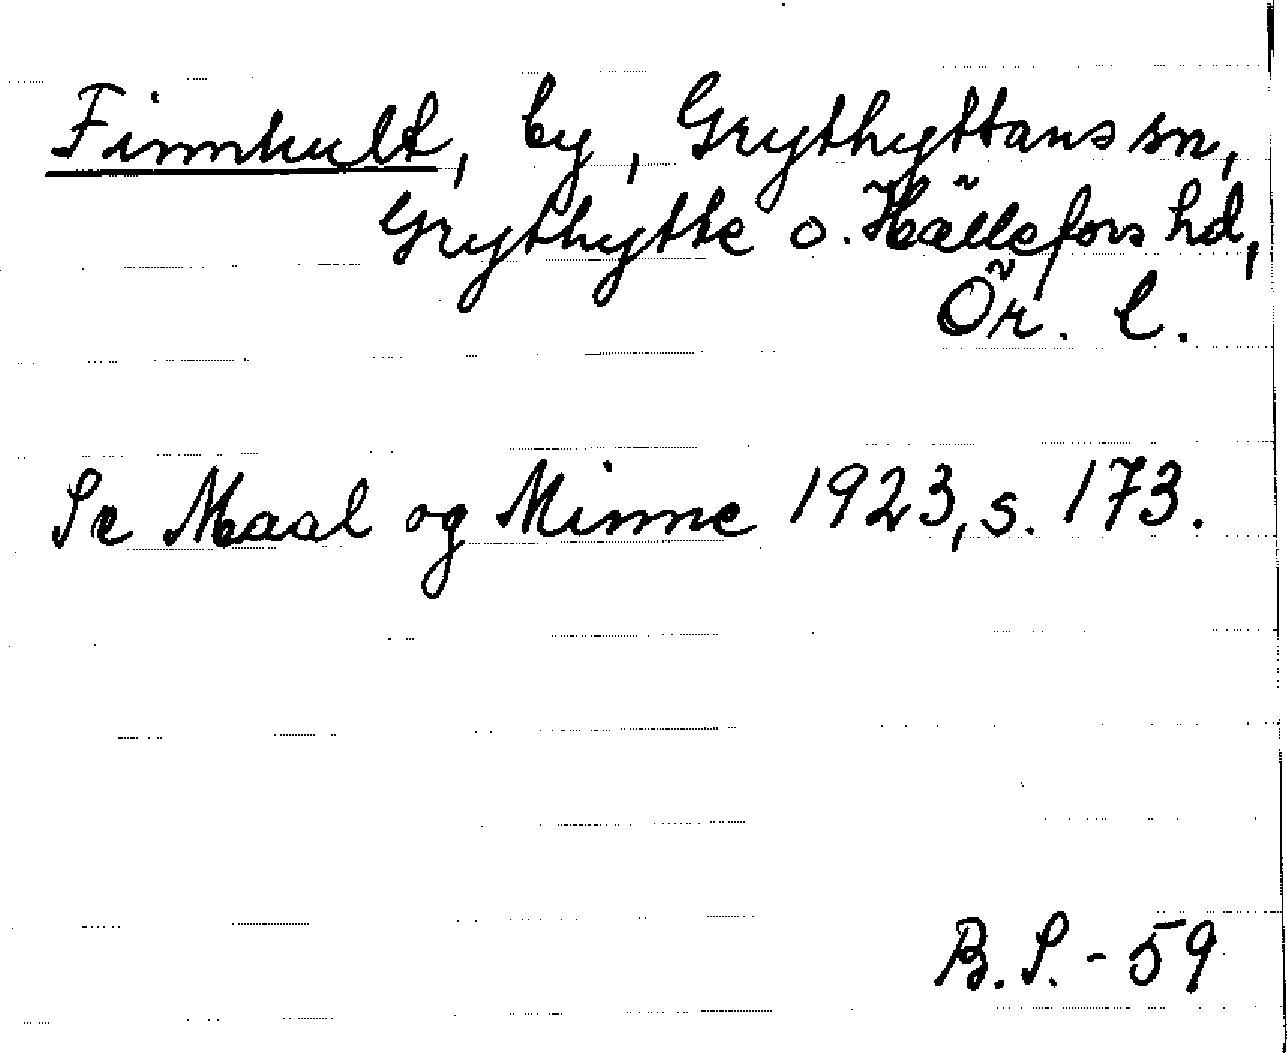 Finnhult, by, Grythyttans sn,
Grythytte o. Hällefors hd,
Ör. l.
Se Maal og Minne 1923, s. 173.
B.S. - 59